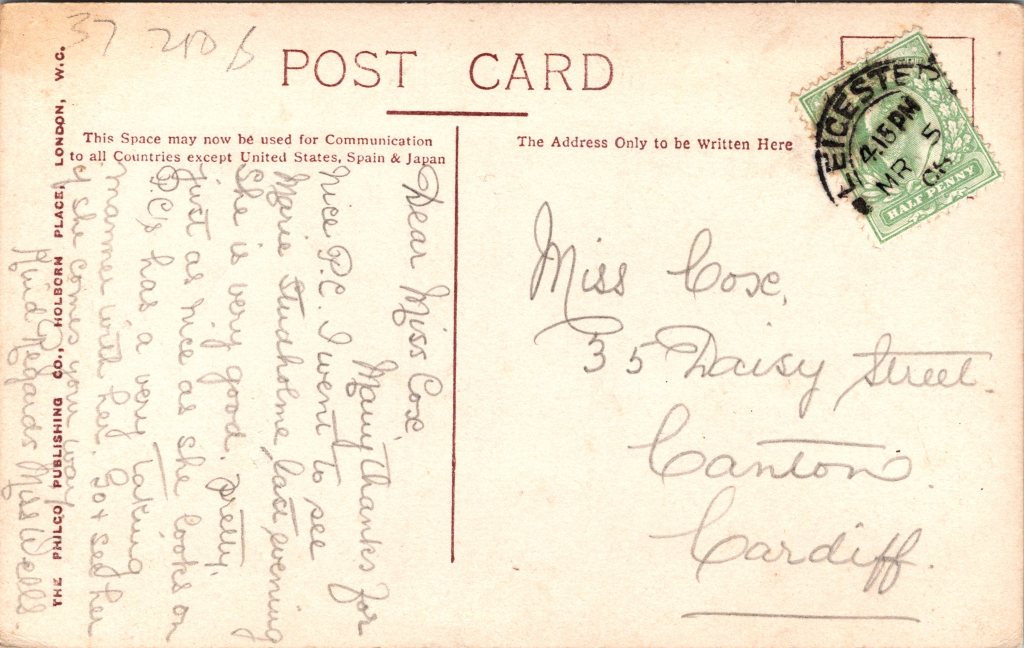 37 2rd 6
POST CARD
This Space may now be used for Communication
to all Countries except United States, Spain & Japan
The Address Only to be Written Here
LEICESTER
4-15 PM
MR 5
HALF PENNY
Dear Miss Cox,
Many thanks for
Nice P.C. I went to see
Marie Studholme last evening
She is very good. pretty,
Just as nice as she looks on
P.C's has a very taking
manner with her. Go & see her
if she comes your way
Kind Regards Miss Wells.
Miss Cox,
35 Daisy Street.
Canton
Cardiff.
THE PHILCO PUBLISHING CO., HOLBORN PLACE, LONDON, W.C.